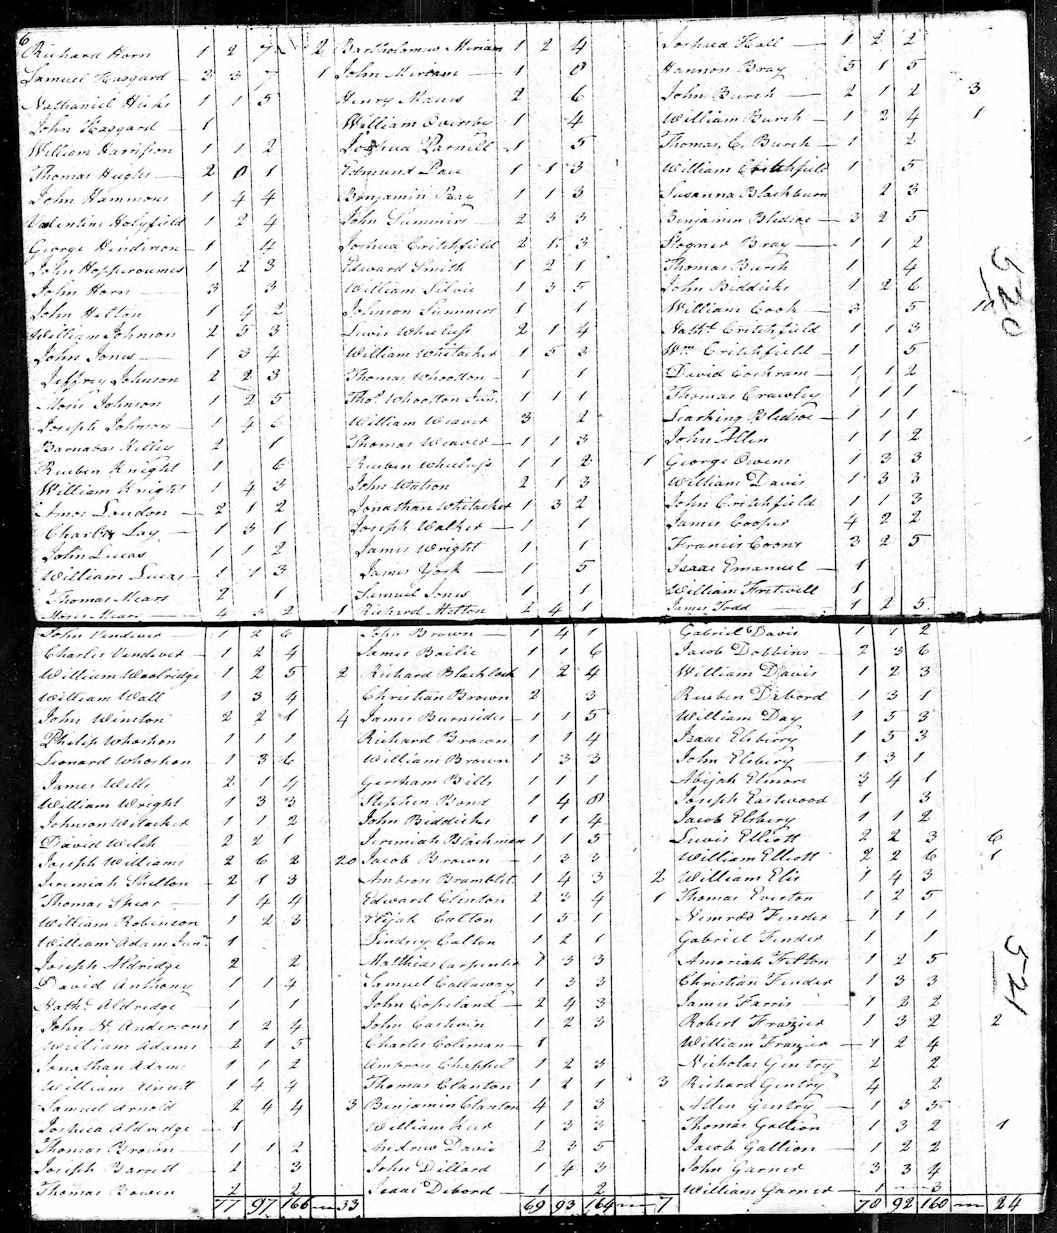 6
Richard Horn 1 2 7 2
Samuel Haggard 3 3 7 1
Nathaniel Hicks 1 1 5
John Haggard 1
William Harrison 1 1 2
Thomas Hughs 2 0 1
John Hammons 1 4 4
Valentine Holyfield 1 2 4
George Henderson 1 4
John Hopperoumes 1 2 3
John Horn 3 3
John Helton 1 4 2
William Johnson 2 5 3
John Jones 1 3 4
Jeffrey Johnson 2 2 3
Moses Johnson 1 2 5
Joseph Johnson 1 4 6
Barnabas Kelley 2 1
Reuben Knight 1 6
William Knight 1 4 3
Amos Loudon 2 1 2
Charles Lay 1 3 1
John Lucas 1 1 2
William Lucas 1 1 3
Thomas Mears 2 1
Moses Mears 4 3 2 1
Bartholomew Miriam 1 2 4
John Miriam 1 0
Henry Manes 2 6
William Oversby 1 4
Joshua Parnill 1 5
Edmund Pace 1 1 3
Benjamin Ray 1 1 3
John Summers 2 3 3
Joshua Critchfield 2 1 3
Edward Smith 1 2 1
William Silvie 1 3 5
Johnson Summers 1 1
Lewis Wheeless 2 1 4
William Whitacker 1 5 3
Thomas Whootton 1 1
Thos Whootton Junr 1 1 1
William Weaver 3 2
Thomas Weaver 1 1 3
Reuben Wheeless 1 1 2 1
John Watson 2 1 3
Jonathan Whitacker 1 3 2
Joseph Walker 1 1
James Wright 1 1
James York 1 5
Samuel Jones 1 1
Richard Hetton 2 4 1
Joshua Hall 1 2 2
Hannon Bray 5 1 5
John Burch 2 1 2 3
William Burch 1 2 4 1
Thomas C. Burch 1 2
William Critchfield 1 5
Susanna Blackburn 2 3
Benjamin Bledsoe 3 2 5
Stogner Bray 1 1 2
Thomas Burch 1 4
John Beddicks 1 2 6
William Cook 3 5 10
Natht Critchfield 1 1 3
Wm Critchfield 1 5
David Cochram 1 1 2
Thomas Crawley 1 1 1
Bledsoe 1 1 1
John Allen 1 1 2
George Owens 1 3 3
William Davis 1 3 3
John Critchfield 1 1 3
James Cooper 4 2 2
Francis Coons 3 2 5
Isaac Emanuel 1
William Fretwell 1
James Todd 1 2 5
520
John Vendever 1 2 6
Charles Vendever 1 2 4
William Woolridge 1 2 5 2
William Wall 1 3 4
John Winston 2 2 1 4
Philip Whoshon 1 1 1
Leonard Whoshon 1 3 6
James Wells 2 1 4
William Wright 1 3 3
Johnson Witacker 1 1 2
David Welch 2 2 1
Joseph Williams 2 6 2 20
Jeremiah Shelton 2 1 3
Thomas Shear 1 4 4
William Robinson 1 2 3
William Adam Junr 1
Joseph Aldridge 2 2
David Anthony 1 1 4
Natht Aldridge 1 1
John N. Andersons 1 2 4
William Adams 2 1 5
Jonathan Adams 1 1 2
William 1 4 4
Samuel Arnold 2 4 4 3
Joshua Aldridge 1
Thomas Brown 1 1 2
Joseph Barrett 2 3
Thomas Bowen 2 2
77 97 166 33
John Brown 1 4 1
James Bailie 1 1 6
Richard Blacklock 1 2 4
Christian Brown 2 3
James Burnsides 1 1 5
Richard Brown 1 1 4
William Brown 1 3 3
Gersham Bills 1 1 1
Stephen Bond 1 4 0
John Beddicks 1 1 4
Jeremiah Blackman 1 1 5
Jacob Brown 1 3 3
Ambrose Bramblet 1 4 3 2
Edward Clinton 2 3 4 1
Elijah Calton 1 5 1
Lindsey Calton 1 2 1
Mathias Carpenter 1 3 3
Samuel Callaway 1 3 3
John Copeland 2 4 3
John Castwin 1 2 3
Charles Coleman 1
Ambrose Cheppel 1 2 3
Thomas Clanton 1 2 1 3
Benjamin Clanton 4 1 3
William Keer 1 3 3
Andrew David 2 3 5
John Dillard 1 4 3
Isaac Debord 1 2
69 93 164 7
Gabriel Davis 1 1 2
Jacob Dobbins 2 3 6
William Davis 1 2 3
Reuben Debord 1 3 1
William Day 1 5 3
Isaac Elsberry 1 5 3
John Elsbery 1 3 1
Abijah Elmore 3 4 1
Joseph Eastwood 1 3
Jacob Elsbery 1 1 2
Lewis Elliott 2 2 3 6
William Elliott 2 2 6 1
William Elis 1 4 3
Thomas Everton 1 2 5
Nimrod Fender 1 1 1
Gabriel Fender 1 1
Amoriah Felton 1 2 5
Christian Fender 1 3 3
James Farris 1 2 2
Robert Frazier 1 3 2 2
William Frazier 1 2 4
Nicholas Gentry 2 2
Richard Gentry 4 2
Allen Gentry 1 3 5
Thomas Gallion 1 3 2 1
Jacob Gallion 1 2 2
John Garner 3 3 4
William Garner 1 3
78 92 160 24
521